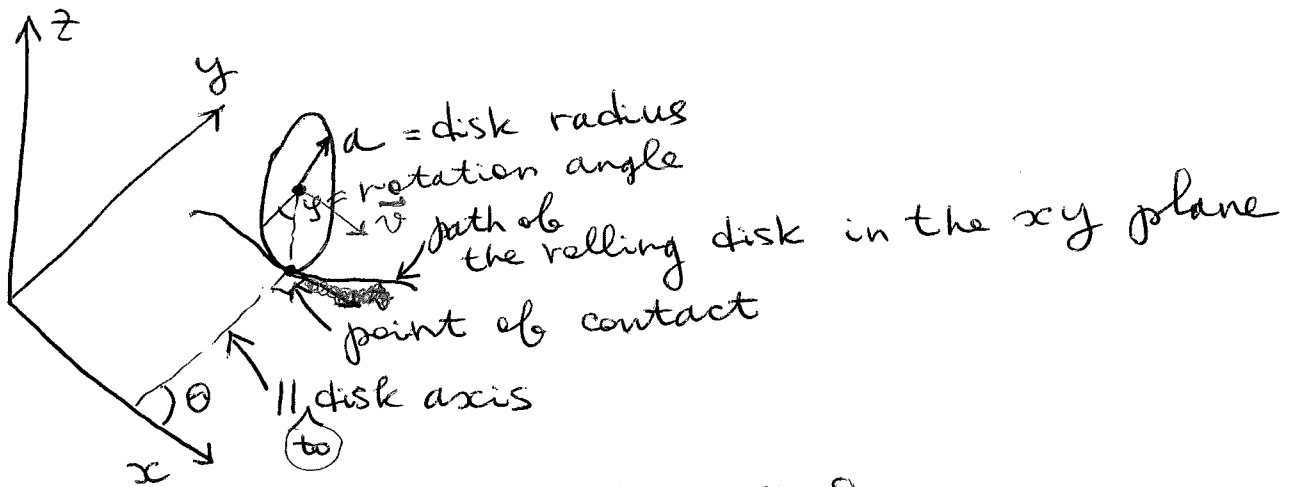 z
y
a = disk radius
φ = rotation angle
v
path of
the rolling disk in the xy plane
point of contact
θ
|| to disk axis
x